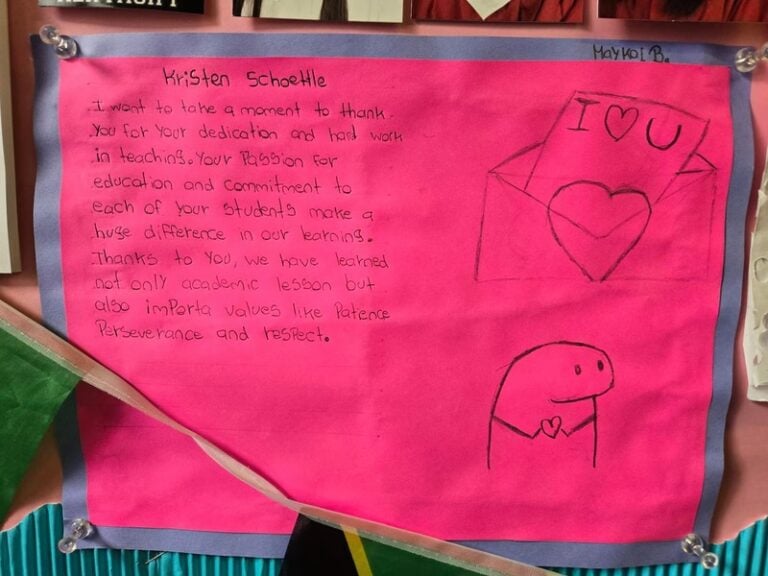 Maykol B.
Kristen Schoettle
I want to take a moment to thank
you for your dedication and hard work
in teaching. Your Passion for
education and commitment to
each of your students make a
huge difference in our learning.
Thanks to you, we have learned
not only academic lesson but
also importa values like Patience
Perseverance and respect.
I ♡ U